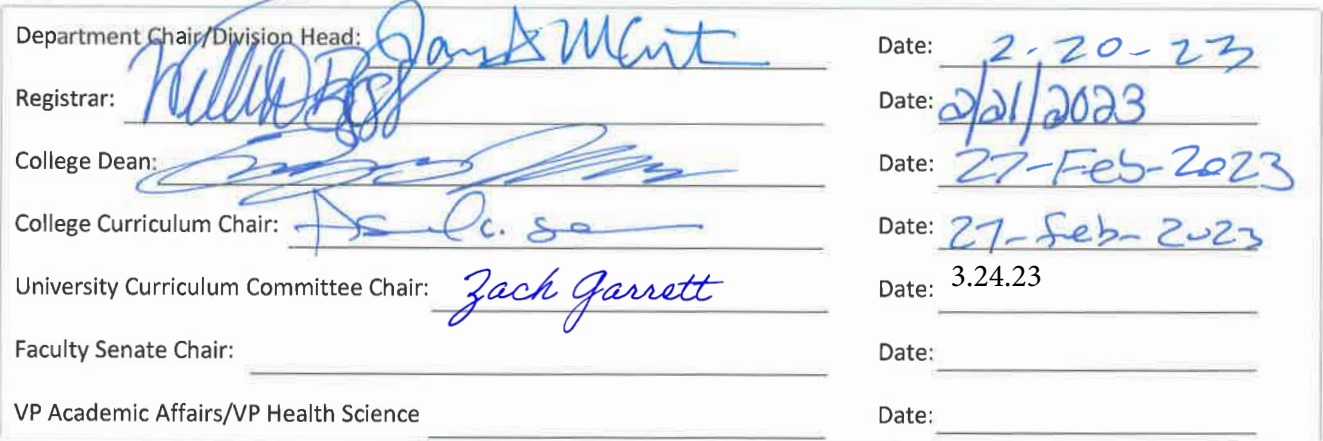 Department Chair/Division Head: Date: 2-20-23
Registrar: Date: 2/21/2023
College Dean: Date: 27-Feb-2023
College Curriculum Chair: Date: 27-Feb-2023
University Curriculum Committee Chair: Zach Garrett Date: 3.24.23
Faculty Senate Chair: Date:
VP Academic Affairs/VP Health Science Date: